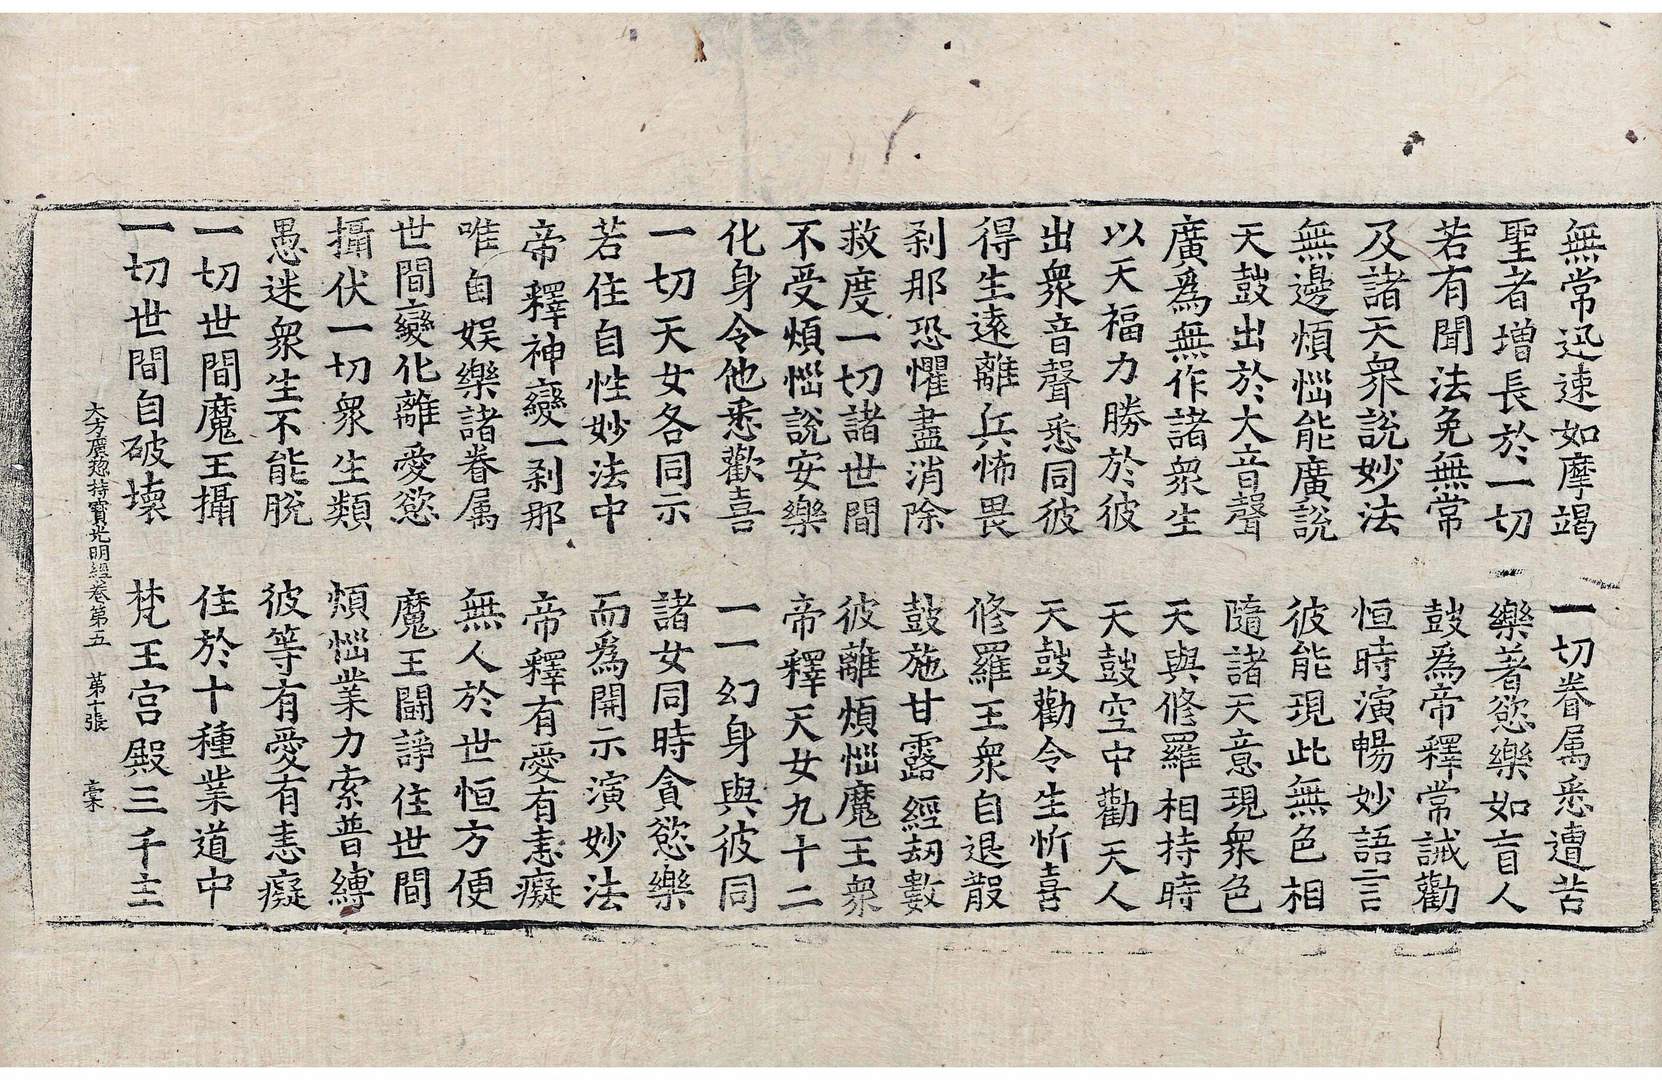 無常迅速如摩竭 一切眷属悉遭苦
聖者增長於一切 樂著慾樂如盲人
若有聞法免無常 鼓爲帝釋常誡勸
及諸天衆說妙法 恒時演暢妙語言
無邊煩惱能廣說 彼能現此無色相
天鼓出於大音聲 隨諸天意現衆色
廣爲無作諸衆生 天與修羅相持時
以天福力勝於彼 天鼓空中勸天人
出衆音聲悉同彼 天鼓勸令生忻喜
得生遠離兵怖畏 修羅王衆自退散
剎那恐懼盡消除 鼓施甘露經劫數
救度一切諸世間 彼離煩惱魔王衆
不受煩惱說安樂 帝釋天女九十二
化身令他悉歡喜 一一幻身與彼同
一切天女各同示 諸女同時貪慾樂
若住自性妙法中 而爲開示演妙法
帝釋神變一剎那 帝釋有愛有恚癡
唯自娛樂諸眷属 無人於世恒方便
世間變化離愛慾 魔王鬪諍住世間
攝伏一切衆生類 煩惱業力索普縛
愚迷衆生不能脫 彼等有愛有恚癡
一切世間魔王攝 住於十種業道中
一切世間自破壞 梵王宮殿三千主
大方廣揔持寶光明經卷第五 第十張 槀